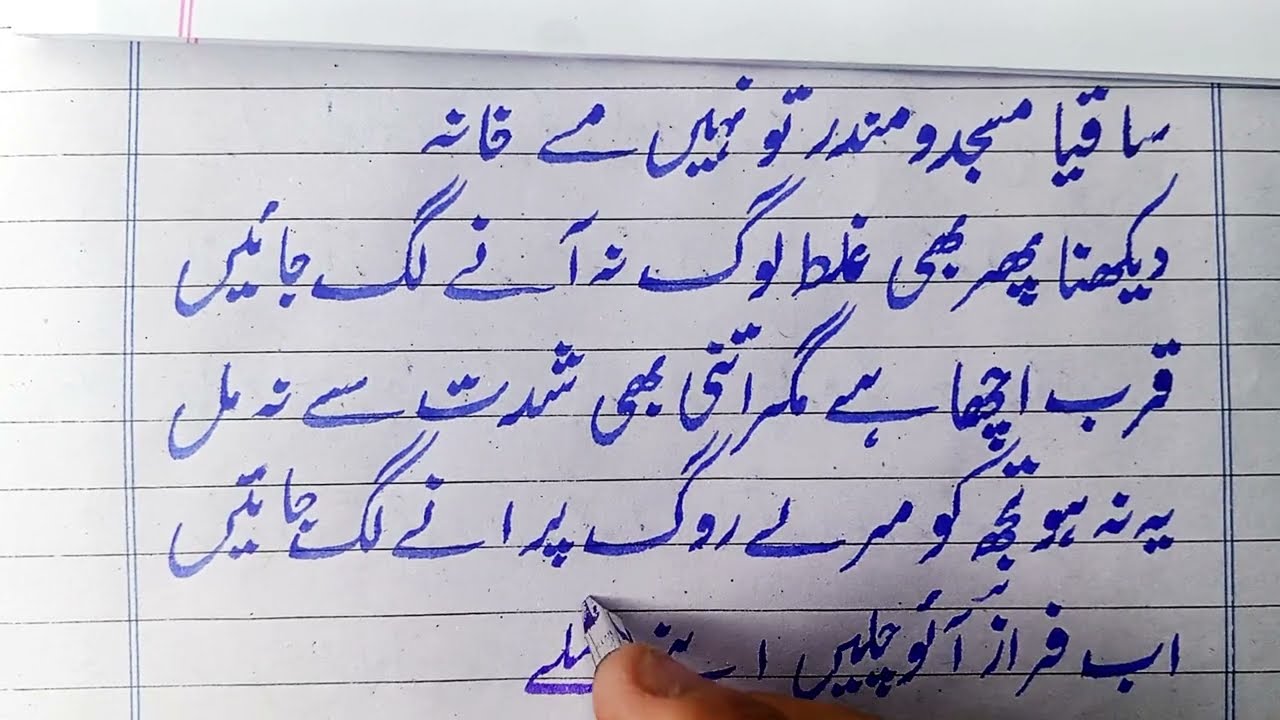 ساقیا مسجد و مندر تو نہیں مے خانہ
دیکھنا پھر بھی غلط لوگ نہ آنے لگ جائیں
قرب اچھا ہے مگر اتنی بھی شدت سے نہ مل
یہ نہ ہو تجھ کو مرے روگ پرانے لگ جائیں
اب فراز آئو چلیں